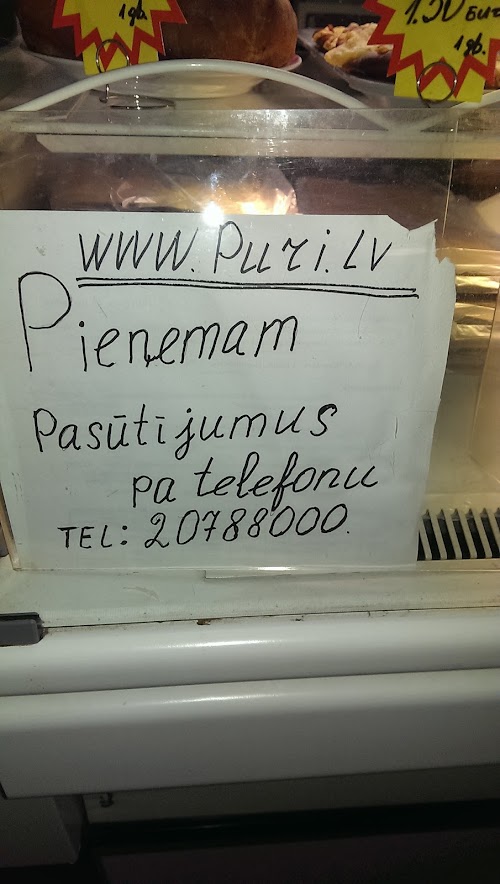 1gb.
1.50 EUR
1gb.
www.Puri.LV
Pieņemam
Pasūtījumus
pa telefonu
TEL: 20788000.